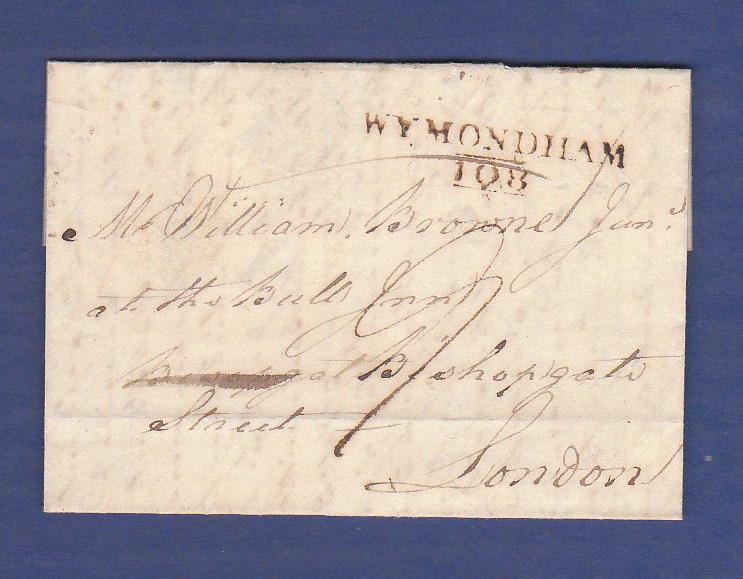 WYMONDHAM
108
Mr William Browne Junr
at the Bull Inn
Bishopgate
Street
London